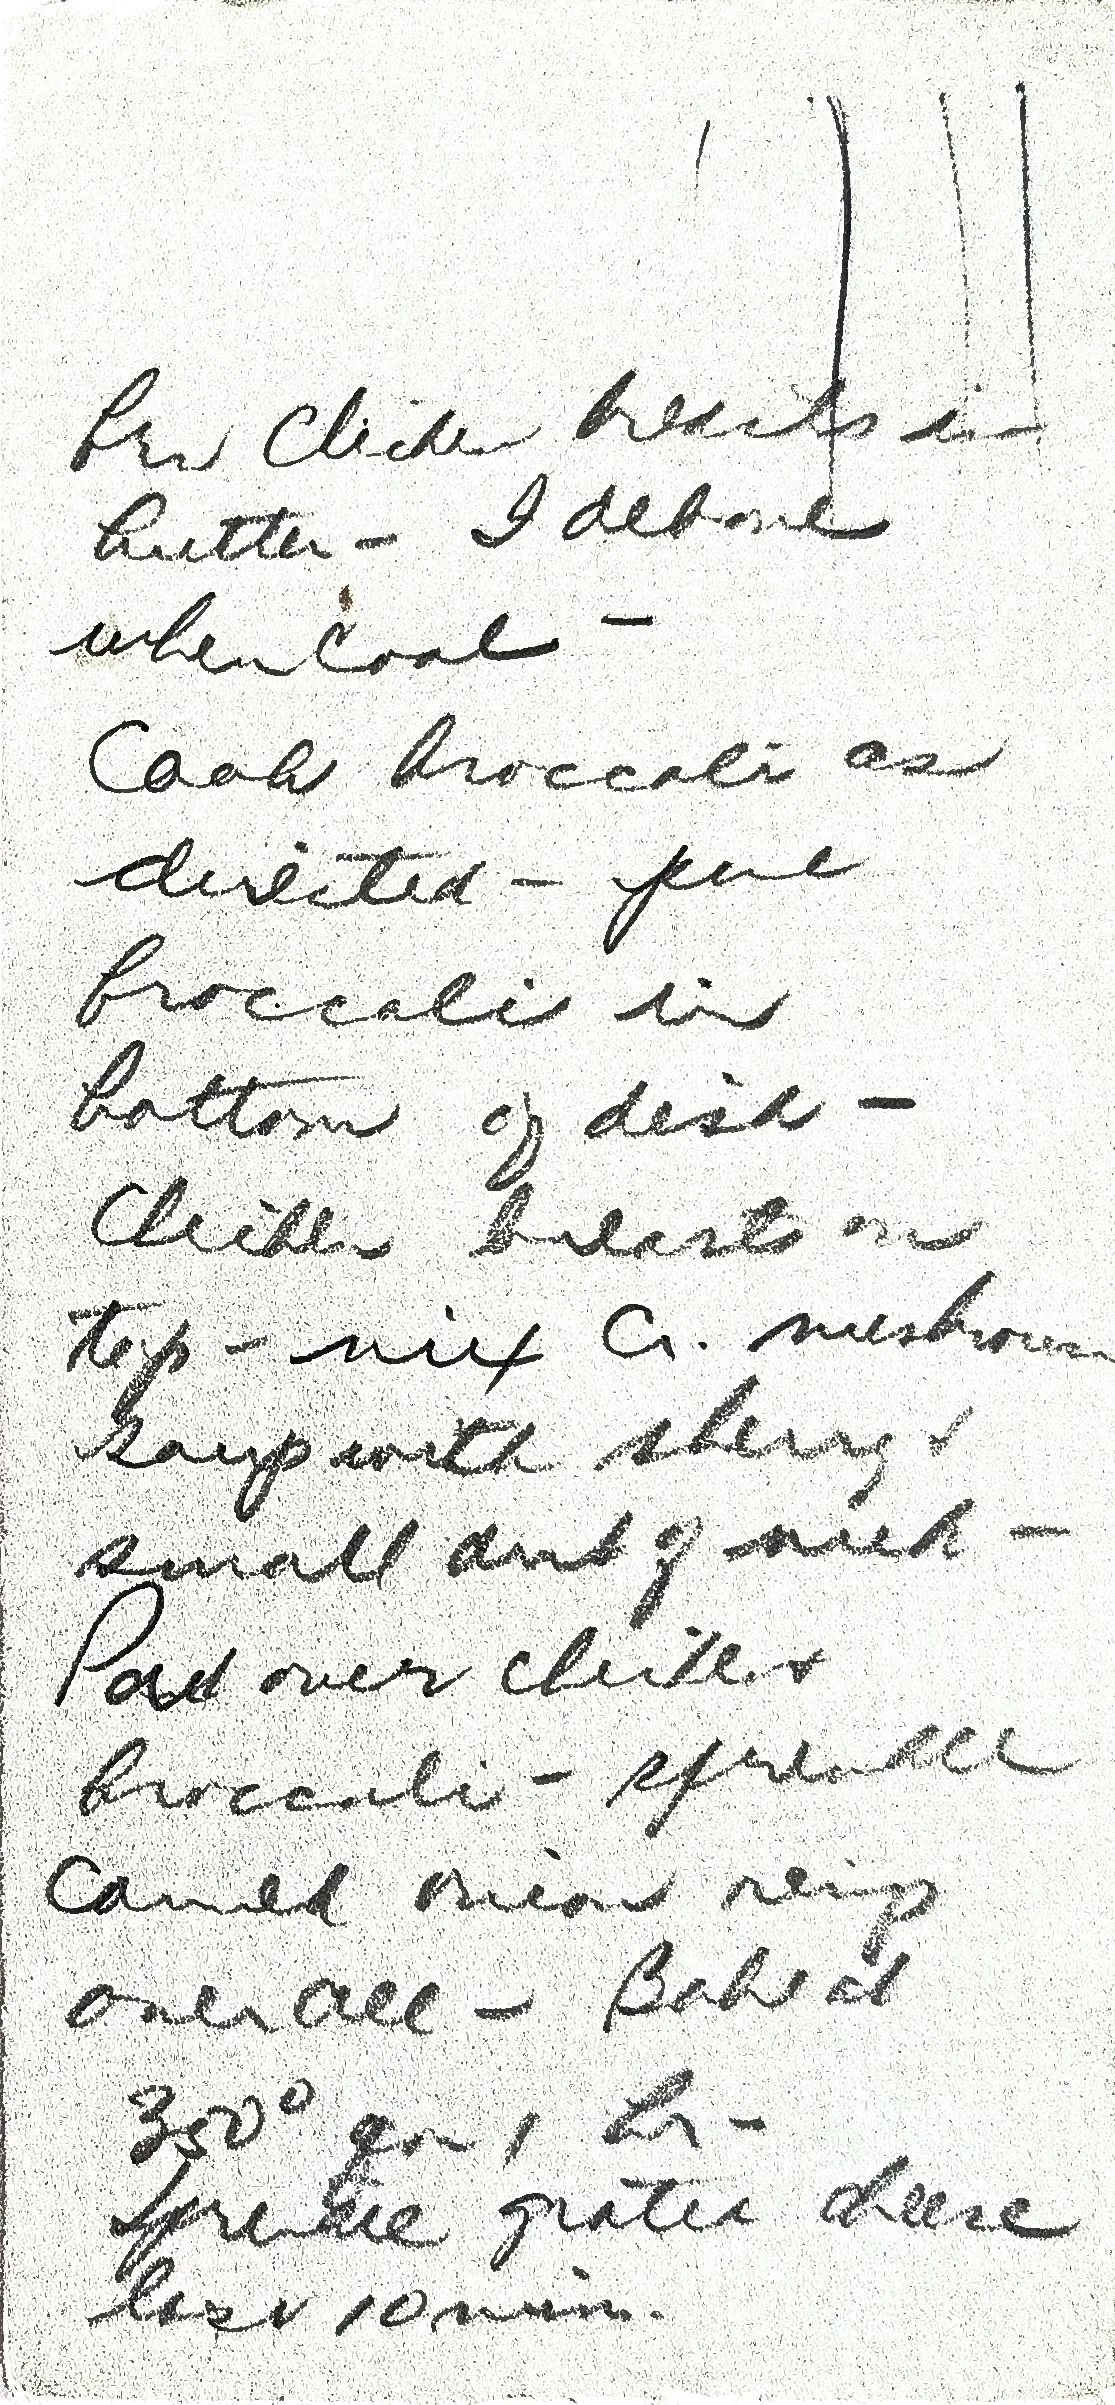 Brn Chicken breasts in
butter - I debone
when cool -
Cook broccoli as
directed - put
broccoli in
bottom of dish -
Chicken breasts on
top - mix Cr. mushroom
soup with sherry &
small amt of milk -
Pour over chicken &
broccoli - sprinkle
Canned onion rings
over all - Bake at
350° for 1 hr -
Sprinkle grated cheese
last 10 min.